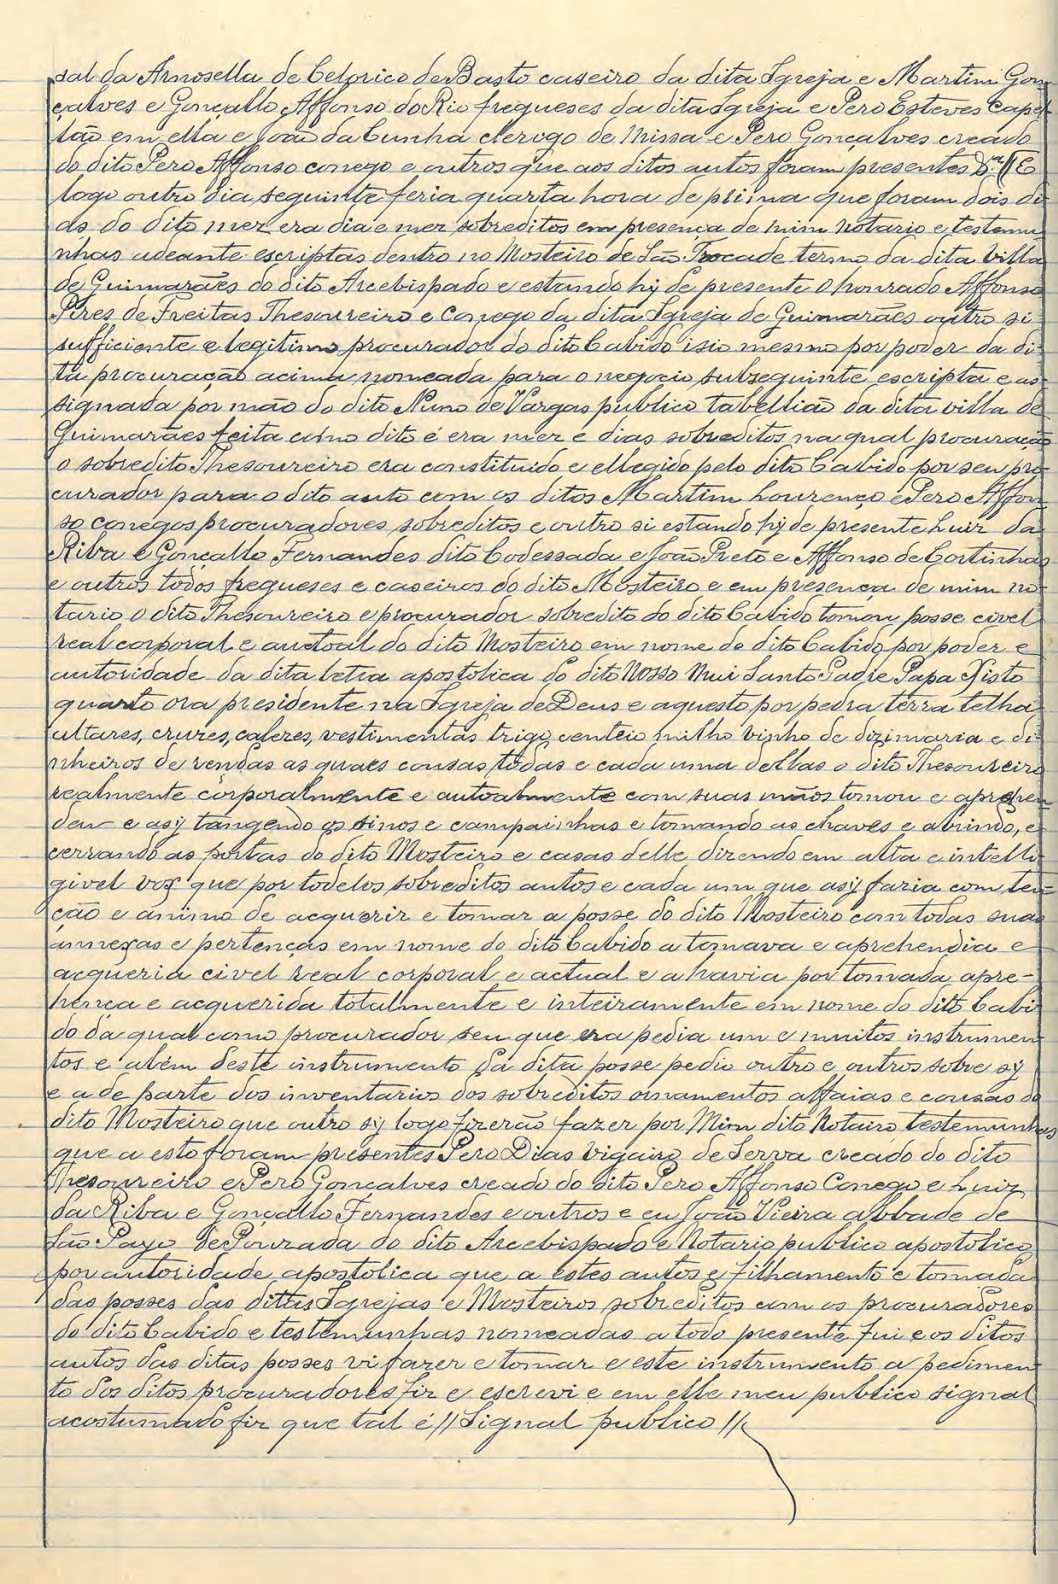 sal da Arnosella de Celorico de Basto caseiro da dita Igreja e Martim Gon
çalves e Gonçallo Affonso do Rio fregueses da dita Igreja e Pero Esteves Capel
lão em ella e João da Cunha clerogo de Missa e Pero Gonçalves creado
do dito Pero Affonso conego e outros que aos ditos autos foram presentes // E
logo outro dia seguinte feria quarta hora de prima que foram dois di
as do dito mez era dia e mez sobreditos em presença de mim notario e testemu
nhas adeante escriptas dentro no Mosteiro de São Trocade termo da dita Villa
de Guimarães do dito Arcebispado e estando hy de presente o honrado Affonso
Pires de Freitas Thesoureiro e Conego da dita Igreja de Guimarães outro si
sufficiente e legitimo procurador do dito Cabido isio mesmo por poder da di
ta procuração acima nomeada para o negocio subsequinte escripta e as-
signada por mão do dito Nuno de Vargas publico tabellião da dita villa de
Guimarães feita como dito é era mez e dias sobreditos na qual procuração
o sobredito Thesoureiro era constituido e ellegido pelo dito Cabido por seu pro-
curador para o dito auto com os ditos Martim Lourenço e Pero Affon
so conegos procuradores sobreditos e outro si estando hy de presente Luiz da
Riba e Gonçallo Fernandes dito Codessada e João Preto e Affonso de Cortinhas
e outros todos fregueses e caseiros do dito Mosteiro e em presença de mim no-
tario o dito Thesoureiro e procurador sobredito do dito Cabido tomou posse civel
real corporal e auctoal do dito Mosteiro em nome do dito Cabido por poder e
autoridade da dita letra apostolica do dito Nosso Mui Santo Padre Papa Xisto
quarto ora presidente na Igreja de Deus e aquesto por pedra terra telha
altares, cruzes, calezes, vestimentas trigo, centeio milho vinho de dizimaria e di
nheiros de vendas as quaes cousas todas e cada uma dellas o dito Thesoureiro
realmente corporalmente e autoalmente com suas mãos tomou e aprehen
deu e asy tangendo os sinos e campainhas e tomando as chaves e abrindo, e
cerrando as portas do dito Mosteiro e casas delle dizendo em alta e intelli
givel voz que por todelos sobreditos autos e cada um que asy faria com ten-
ção e animo de acquerir e tomar a posse do dito Mosteiro com todas suas
annexas e pertenças em nome do dito Cabido a tomava e aprehendia e
acqueria civel real corporal e actual e a havia por tomada apre-
hença e acquerida totalmente e inteiramente em nome do dito Cabi
do da qual como procurador seu que era pedia um e muitos instrumen
tos e além deste instrumento da dita posse pedio outro e outros sobre sy
e a de parte dos inventarios dos sobreditos ornamentos alfaias e cousas do
dito Mosteiro que outro sy logo fizerão fazer por Mim dito Notairo testemunhas
que a esto foram presentes Pero Dias Vigairo de Serva creado do dito
Thesoureiro e Pero Goncalves creado do dito Pero Affonso Conego e Luiz
da Riba e Gonçallo Fernandes e outros e eu João Vieira abbade de
São Payo de Pourada do dito Arcebispado e Notario publico apostolico
por autoridade apostolica que a estes autos e filhamento e tomada
das posses das dittas Igrejas e Mosteiros sobreditos com os procuradores
do dito Cabido e testemunhas nomeadas a todo presente fui e os ditos
autos das ditas posses vi fazer e tomar e este instrumento a pedimen
to dos ditos procuradores fiz e escrevi e em elle meu publico signal
acostumado fiz que tal é // Signal publico //